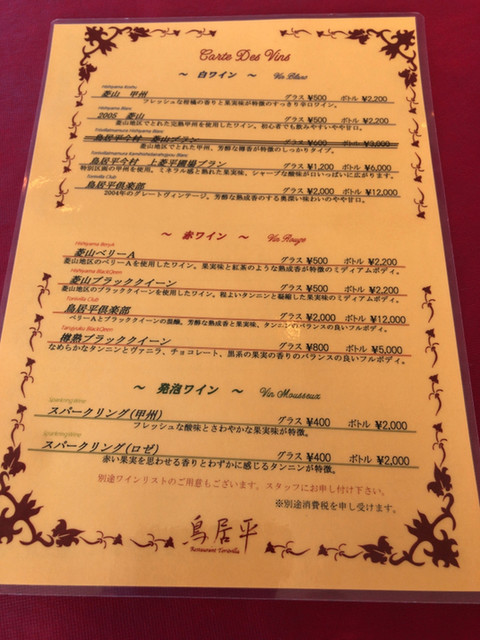 Carte Des Vins
～ 白ワイン ～ Vin Blanc
Hishiyama Koshu
菱山 甲州 グラス ¥500 ボトル ¥2,200
フレッシュな柑橘の香りと果実味が特徴のすっきり辛口ワイン。
Hishiyama Blanc
2005 菱山 グラス ¥500 ボトル ¥2,200
菱山地区でとれた完熟甲州を使用したワイン。初心者でも飲みやすいやや甘口。
菱山ブラン グラス ¥600 ボトル ¥3,000
菱山地区でとれた甲州。芳醇な樽香が特徴のしっかりタイプ。
鳥居平今村 上菱平圃場ブラン グラス ¥1,200 ボトル ¥6,000
特別区画の甲州を使用。ミネラル感と熟れた果実味、シャープな酸味が口いっぱいに広がります。
Toriivilla Club
鳥居平倶楽部 グラス ¥2,000 ボトル ¥12,000
2004年のグレートヴィンテージ。芳醇な熟成香のする奥深い味わいのやや甘口。
～ 赤ワイン ～ Vin Rouge
Hishiyama BeryA
菱山ベリーA グラス ¥500 ボトル ¥2,200
菱山地区のベリーAを使用したワイン。果実味と紅茶のような熟成香が特徴のミディアムボディ。
Hishiyama BlackQeen
菱山ブラッククイーン グラス ¥500 ボトル ¥2,200
菱山地区のブラッククイーンを使用したワイン。程よいタンニンと凝縮した果実味のミディアムボディ。
Toriivilla Club
鳥居平倶楽部 グラス ¥2,000 ボトル ¥12,000
ベリーAとブラッククイーンの混醸。芳醇な熟成香と果実味、タンニンのバランスの良いフルボディ。
Tarujuku BlackQeen
樽熟ブラッククイーン グラス ¥800 ボトル ¥5,000
なめらかなタンニンとヴァニラ、チョコレート、黒系の果実の香りのバランスの良いフルボディ。
～ 発泡ワイン ～ Vin Mousseux
SparklingWine
スパークリング(甲州) グラス ¥400 ボトル ¥2,000
フレッシュな酸味とさわやかな果実味が特徴。
SparklingWine
スパークリング(ロゼ) グラス ¥400 ボトル ¥2,000
赤い果実を思わせる香りとわずかに感じるタンニンが特徴。
別途ワインリストのご用意もございます。スタッフにお申し付け下さい。
※別途消費税を申し受けます。
鳥居平
Restaurant Toriivilla